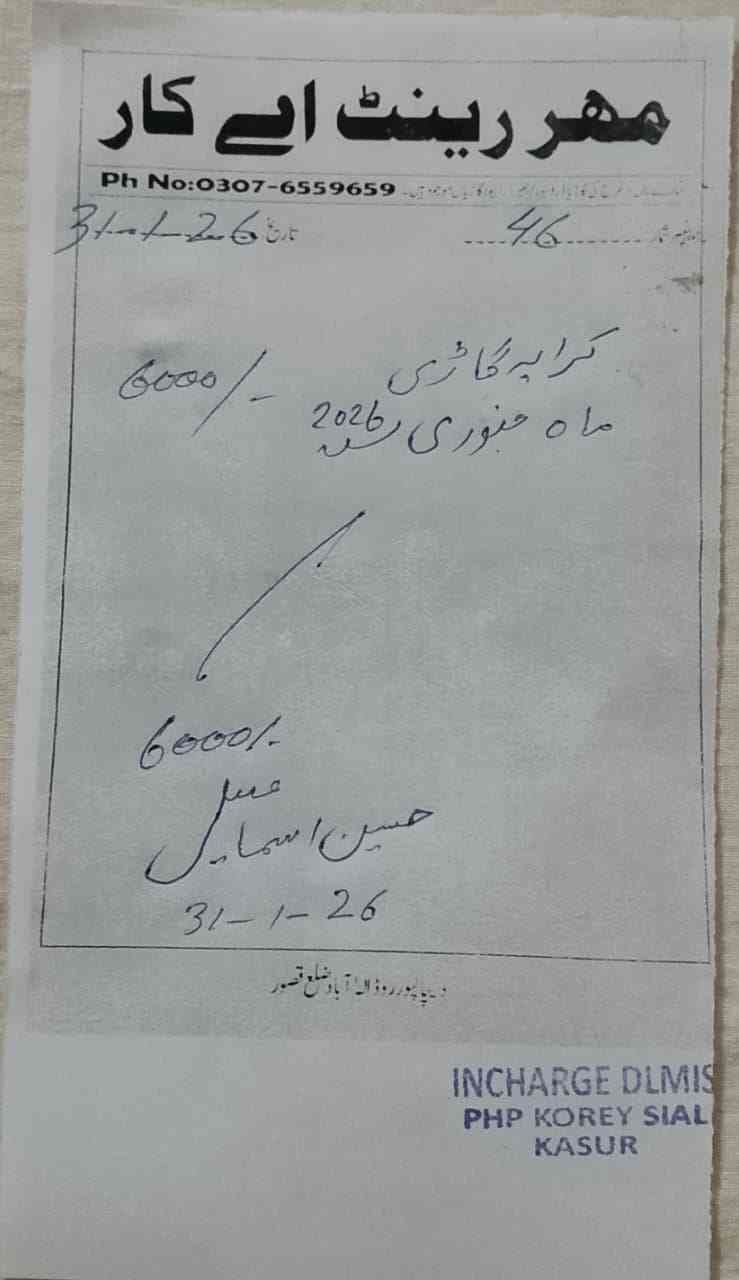 مهر رینٹ اے کار
Ph No:0307-6559659
46 تاریخ 31-1-26
کرایہ گاڑی 6000/-
ماہ جنوری سن 2026
6000/-
حسین اسماعیل
31-1-26
دیپالپور روڈ الہ آباد ضلع قصور
INCHARGE DLMIS
PHP KOREY SIAL
KASUR